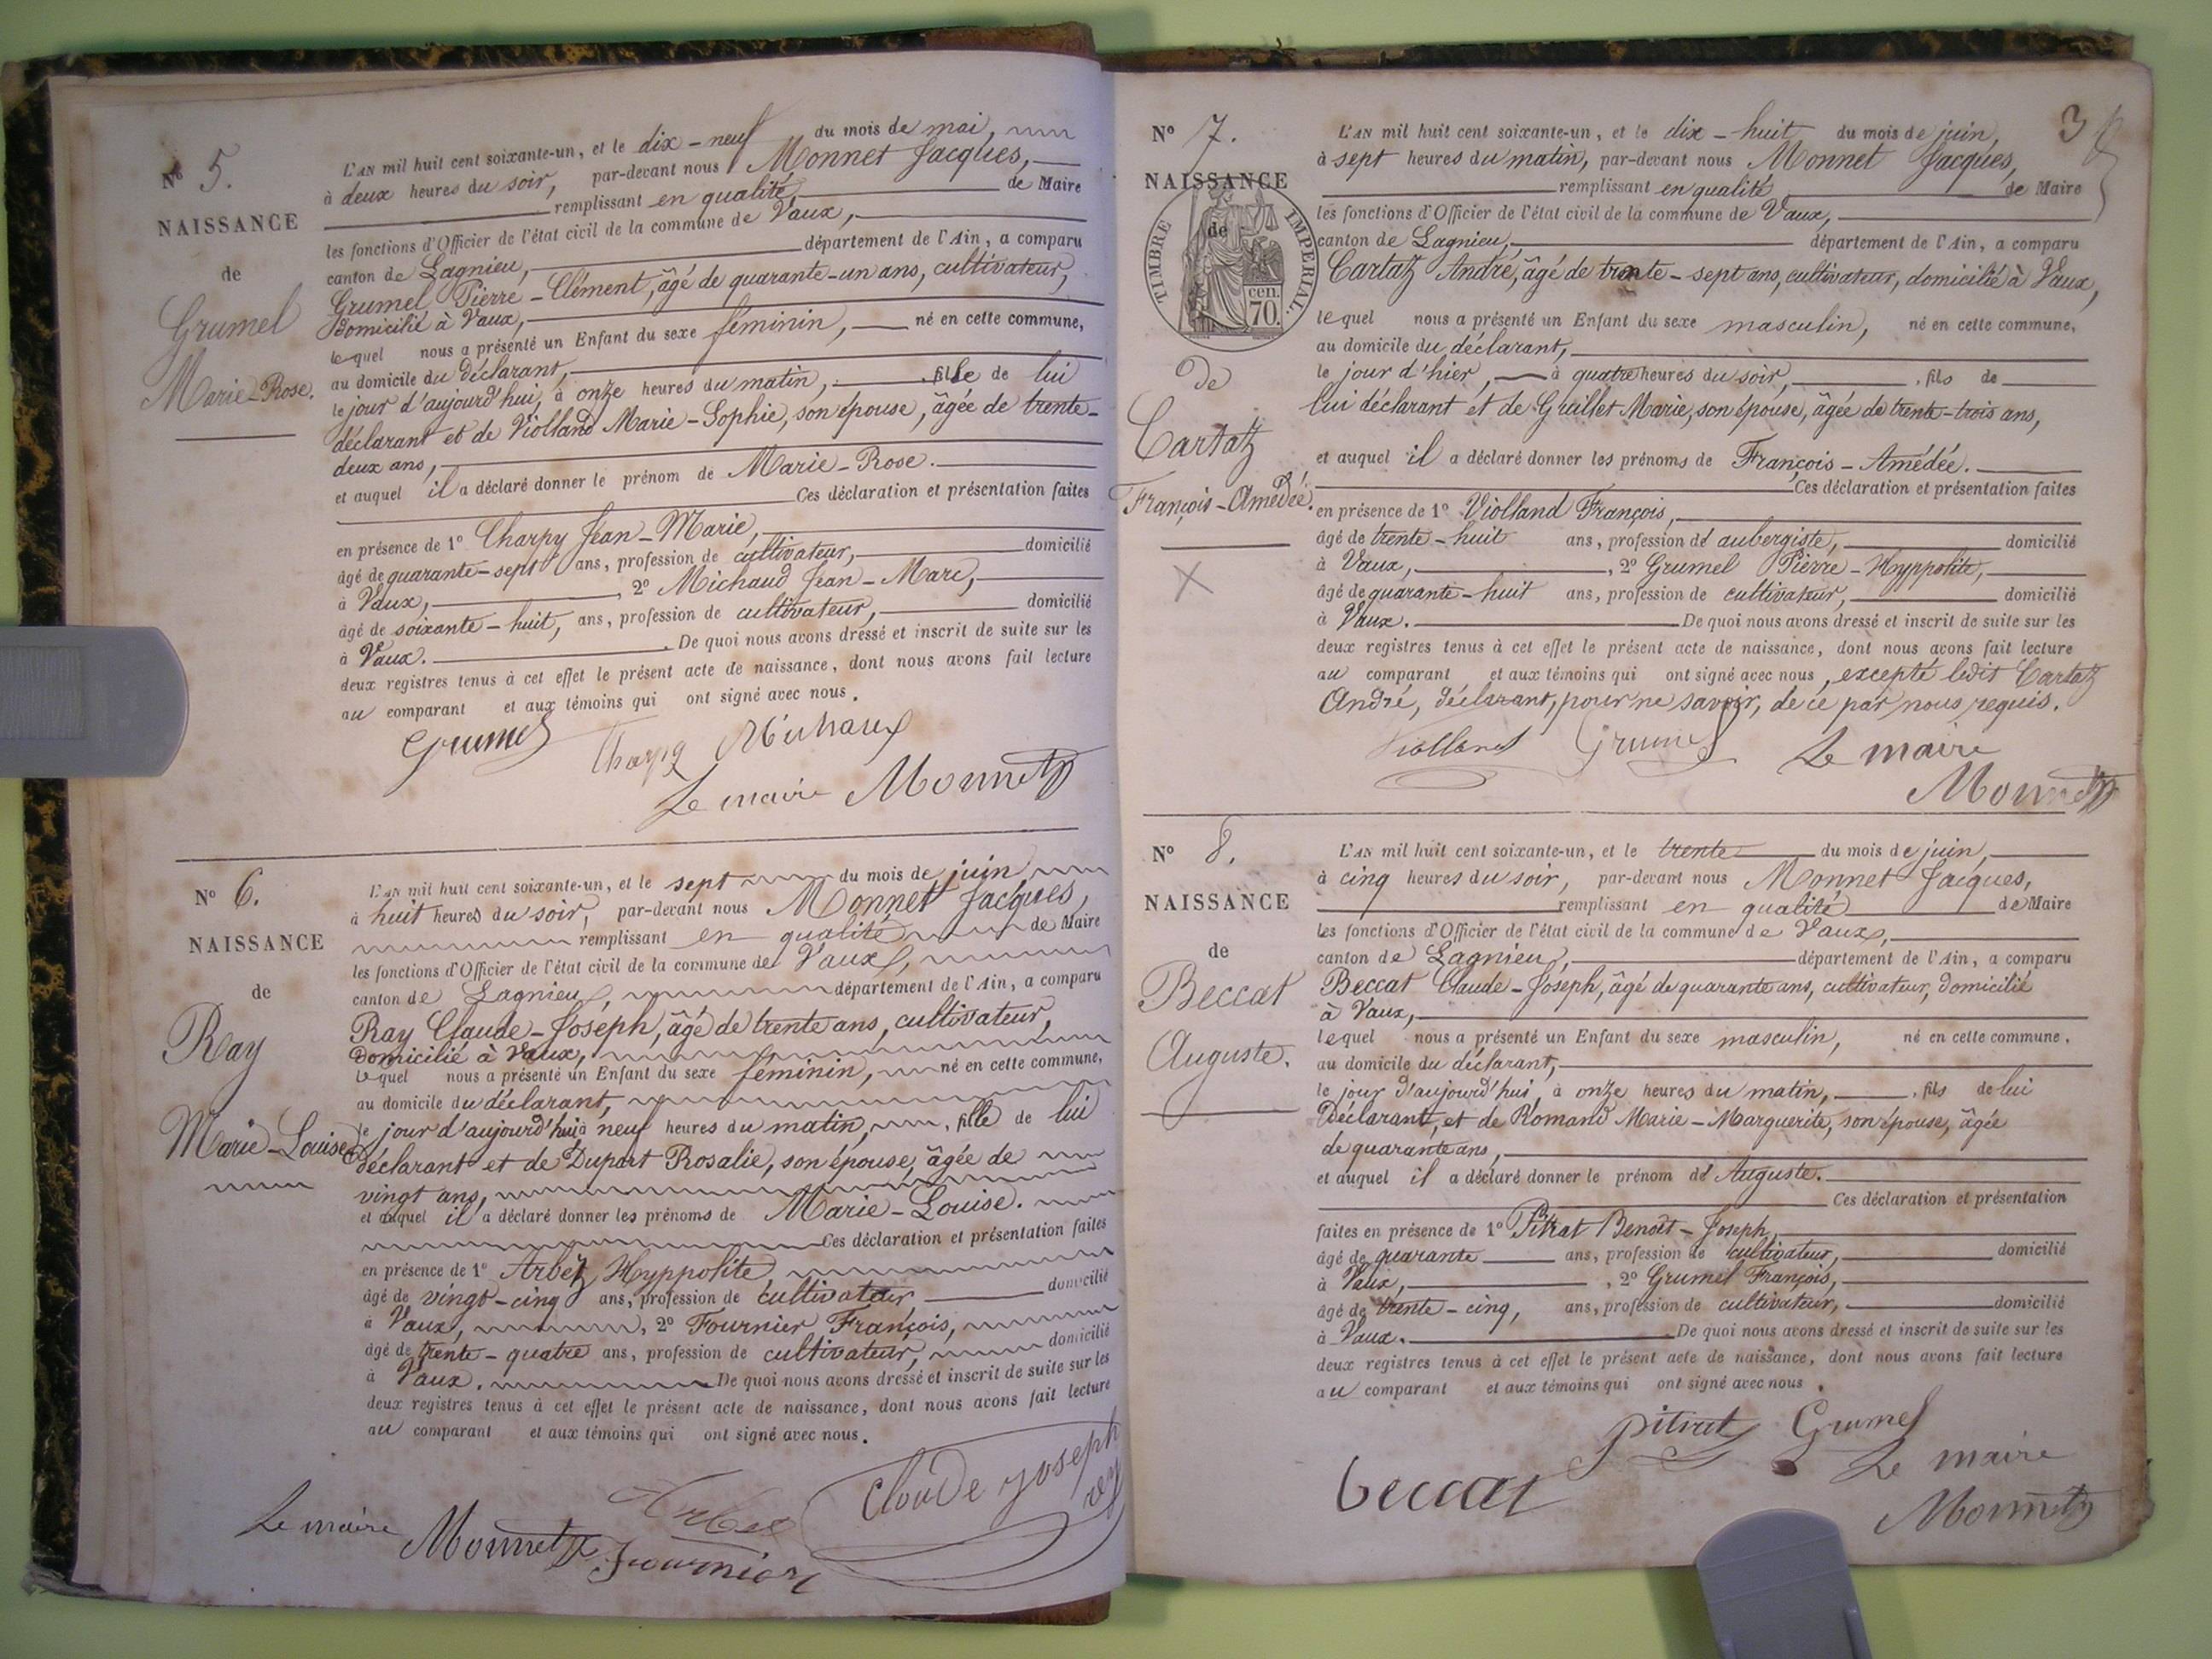 N° 5.
NAISSANCE
de
Grumel
Marie-Rose.
L'AN mil huit cent soixante-un, et le dix-neuf du mois de mai,
à deux heures du soir, par-devant nous Monnet Jacques,
remplissant en qualité de Maire
les fonctions d'Officier de l'état civil de la commune de Vaux,
canton de Lagnieu, département de l'Ain, a comparu
Grumel Pierre-Clément, âgé de quarante-un ans, cultivateur,
domicilié à Vaux,
lequel nous a présenté un Enfant du sexe féminin, né en cette commune,
au domicile du déclarant,
le jour d'aujourd'hui, à onze heures du matin, fille de lui
déclarant et de Violland Marie-Sophie, son épouse, âgée de trente-
deux ans,
et auquel il a déclaré donner le prénom de Marie-Rose.
Ces déclaration et présentation faites
en présence de 1° Charpy Jean-Marie,
âgé de quarante-sept ans, profession de cultivateur, domicilié
à Vaux, 2° Michaud Jean-Marc,
âgé de soixante-huit, ans, profession de cultivateur, domicilié
à Vaux. De quoi nous avons dressé et inscrit de suite sur les
deux registres tenus à cet effet le présent acte de naissance, dont nous avons fait lecture
au comparant et aux témoins qui ont signé avec nous.
Grumel Charpy Michaux
Le maire Monnet
N° 6.
NAISSANCE
de
Ray
Marie-Louise
L'AN mil huit cent soixante-un, et le sept du mois de juin
à huit heures du soir, par-devant nous Monnet Jacques,
remplissant en qualité de Maire
les fonctions d'Officier de l'état civil de la commune de Vaux,
canton de Lagnieu, département de l'Ain, a comparu
Ray Claude-Joseph, âgé de trente ans, cultivateur,
domicilié à Vaux,
lequel nous a présenté un Enfant du sexe féminin, né en cette commune,
au domicile du déclarant,
le jour d'aujourd'hui à neuf heures du matin, fille de lui
déclarant et de Dupart Rosalie, son épouse, âgée de
vingt ans,
et auquel il a déclaré donner les prénoms de Marie-Louise.
Ces déclaration et présentation faites
en présence de 1° Arbez Hyppolite,
âgé de vingt-cinq ans, profession de cultivateur, domicilié
à Vaux, 2° Fournier François,
âgé de trente-quatre ans, profession de cultivateur, domicilié
à Vaux. De quoi nous avons dressé et inscrit de suite sur les
deux registres tenus à cet effet le présent acte de naissance, dont nous avons fait lecture
au comparant et aux témoins qui ont signé avec nous.
Claude joseph rey
Le maire Monnet Arbez
Fournier
3
N° 7.
NAISSANCE
de
TIMBRE IMPERIAL.
70 cen.
De
Cartatz
François-Amédée.
X
L'AN mil huit cent soixante-un, et le dix-huit du mois de juin,
à sept heures du matin, par-devant nous Monnet Jacques,
remplissant en qualité de Maire
les fonctions d'Officier de l'état civil de la commune de Vaux,
canton de Lagnieu, département de l'Ain, a comparu
Cartatz André, âgé de trente-sept ans, cultivateur, domicilié à Vaux,
lequel nous a présenté un Enfant du sexe masculin, né en cette commune,
au domicile du déclarant,
le jour d'hier, à quatre heures du soir, fils de
lui déclarant et de Guillet Marie, son épouse, âgée de trente-trois ans,
et auquel il a déclaré donner les prénoms de François-Amédée.
Ces déclaration et présentation faites
en présence de 1° Violland François,
âgé de trente-huit ans, profession de aubergiste, domicilié
à Vaux, 2° Grumel Pierre-Hyppolite,
âgé de quarante-huit ans, profession de cultivateur, domicilié
à Vaux. De quoi nous avons dressé et inscrit de suite sur les
deux registres tenus à cet effet le présent acte de naissance, dont nous avons fait lecture
au comparant et aux témoins qui ont signé avec nous, excepté ledit Cartatz
André, déclarant, pour ne savoir, de ce par nous requis.
Violland Grumel Le maire
Monnet
N° 8.
NAISSANCE
de
Beccat
Auguste.
L'AN mil huit cent soixante-un, et le trente du mois de juin,
à cinq heures du soir, par-devant nous Monnet Jacques,
remplissant en qualité de Maire
les fonctions d'Officier de l'état civil de la commune de Vaux,
canton de Lagnieu, département de l'Ain, a comparu
Beccat Claude-Joseph, âgé de quarante ans, cultivateur, domicilié
à Vaux,
lequel nous a présenté un Enfant du sexe masculin, né en cette commune,
au domicile du déclarant,
le jour d'aujourd'hui, à onze heures du matin, fils de lui
déclarant, et de Romand Marie-Marguerite, son épouse, âgée
de quarante ans,
et auquel il a déclaré donner le prénom de Auguste.
Ces déclaration et présentation
faites en présence de 1° Pitrat Benoît-Joseph,
âgé de quarante ans, profession de cultivateur, domicilié
à Vaux, 2° Grumel François,
âgé de trente-cinq, ans, profession de cultivateur, domicilié
à Vaux. De quoi nous avons dressé et inscrit de suite sur les
deux registres tenus à cet effet le présent acte de naissance, dont nous avons fait lecture
au comparant et aux témoins qui ont signé avec nous.
pitrat Grumel
beccat Le maire
Monnet